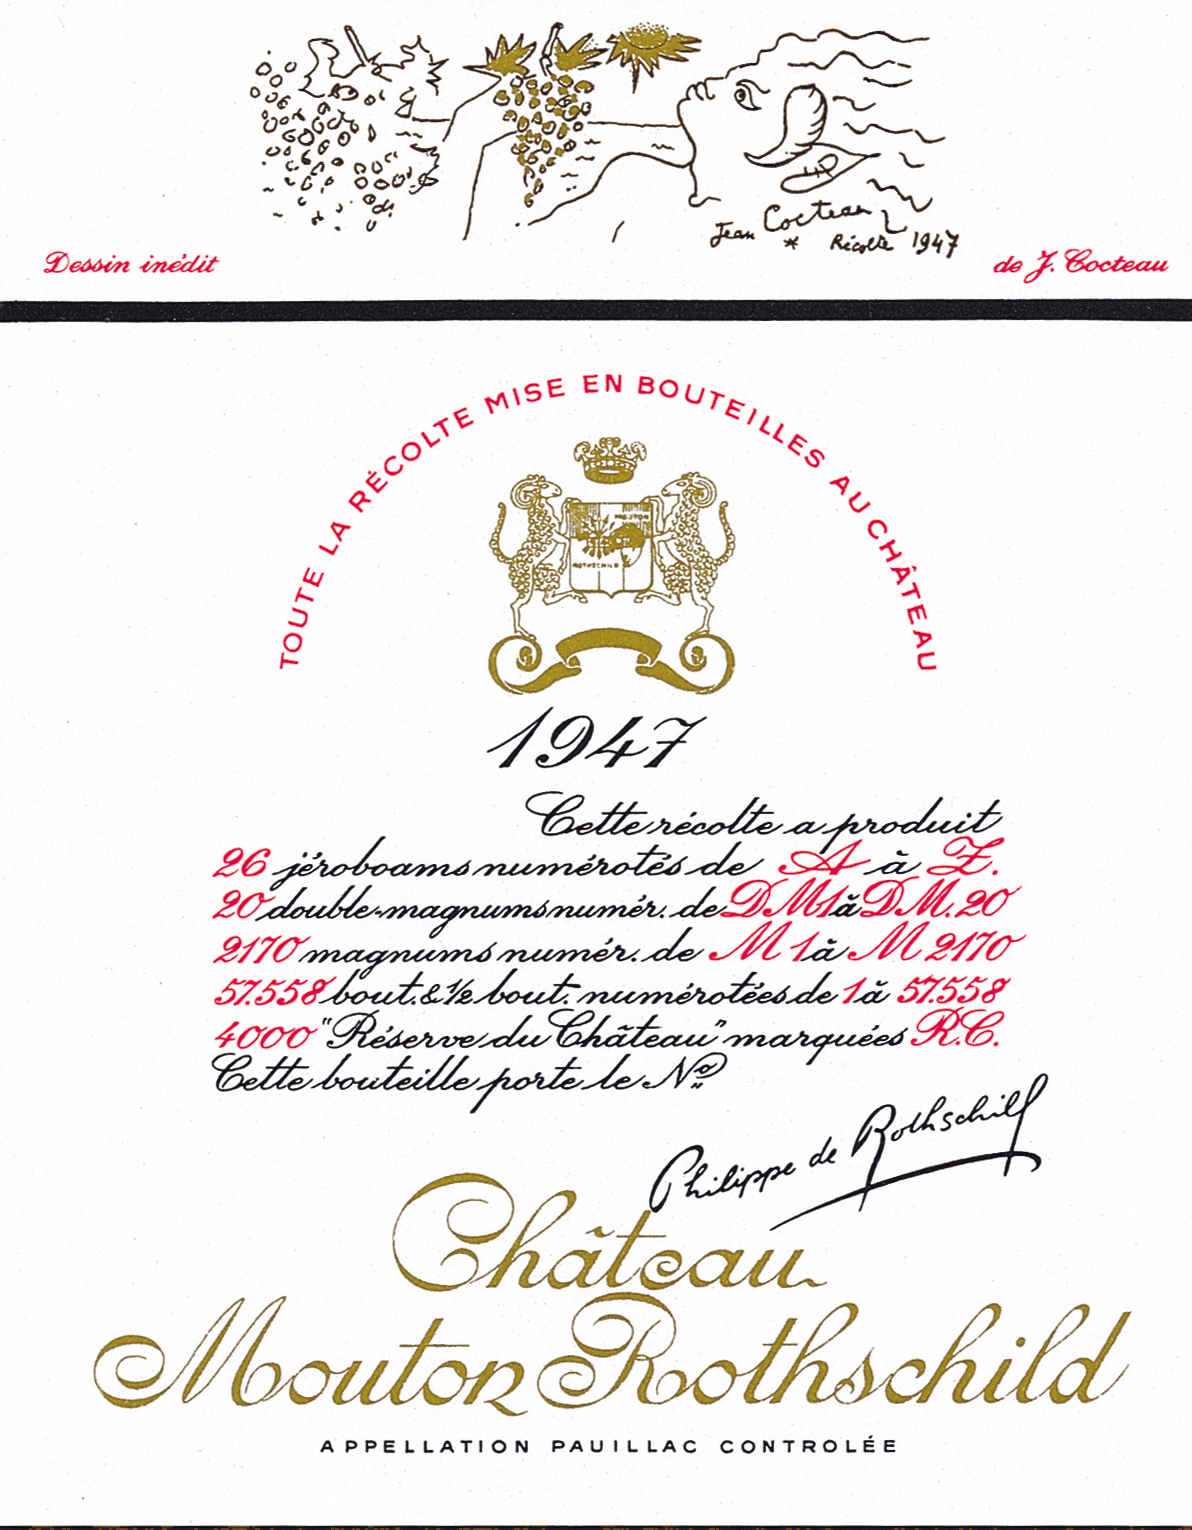 Jean Cocteau
* Récolte 1947
Dessin inédit
de J. Cocteau
TOUTE LA RÉCOLTE MISE EN BOUTEILLES AU CHÂTEAU
MOUTON
ROTHSCHILD
1947
Cette récolte a produit
26 jéroboams numérotés de A à Z.
20 double-magnums numér. de DM1 à DM.20
2170 magnums numér. de M 1 à M 2170
57.558 bout. & ½ bout. numérotées de 1 à 57.558
4000 "Réserve du Château" marquées R.C.
Cette bouteille porte le Nº
Philippe de Rothschild
Château
Mouton Rothschild
APPELLATION PAUILLAC CONTROLÉE